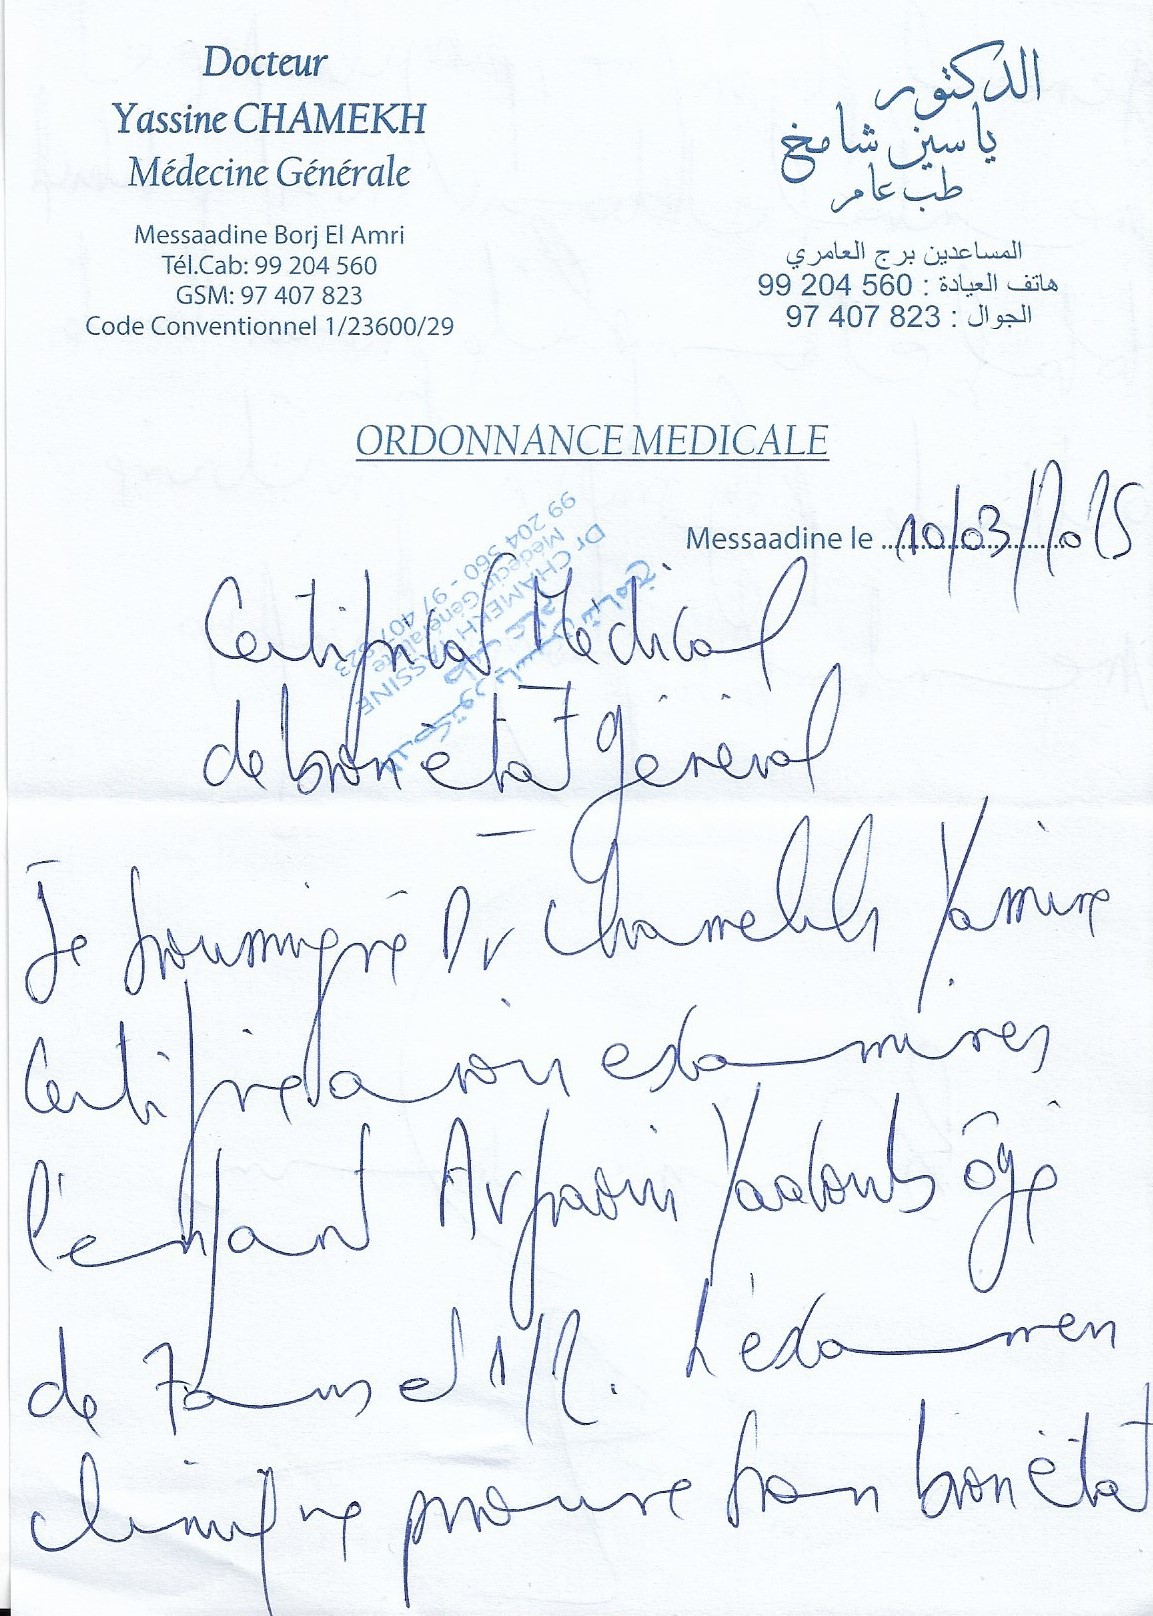 Docteur
Yassine CHAMEKH
Médecine Générale
Messaadine Borj El Amri
Tél.Cab: 99 204 560
GSM: 97 407 823
Code Conventionnel 1/23600/29
الدكتور
ياسين شامخ
طب عام
المساعدين برج العامري
هاتف العيادة : 560 204 99
الجوال : 823 407 97
ORDONNANCE MEDICALE
Messaadine le 10/03/2025
Dr CHAMEKH YASSINE
Médecin Généraliste
99 204 560 - 97 407 823
Certificat Médical
de bon état général
Je soussigné Dr Chamekh Yassine
Certifie avoir examiner
l'enfant Yakoub âgé
de 7 ans et 1/2. L'examen
clinique prouve son bon état